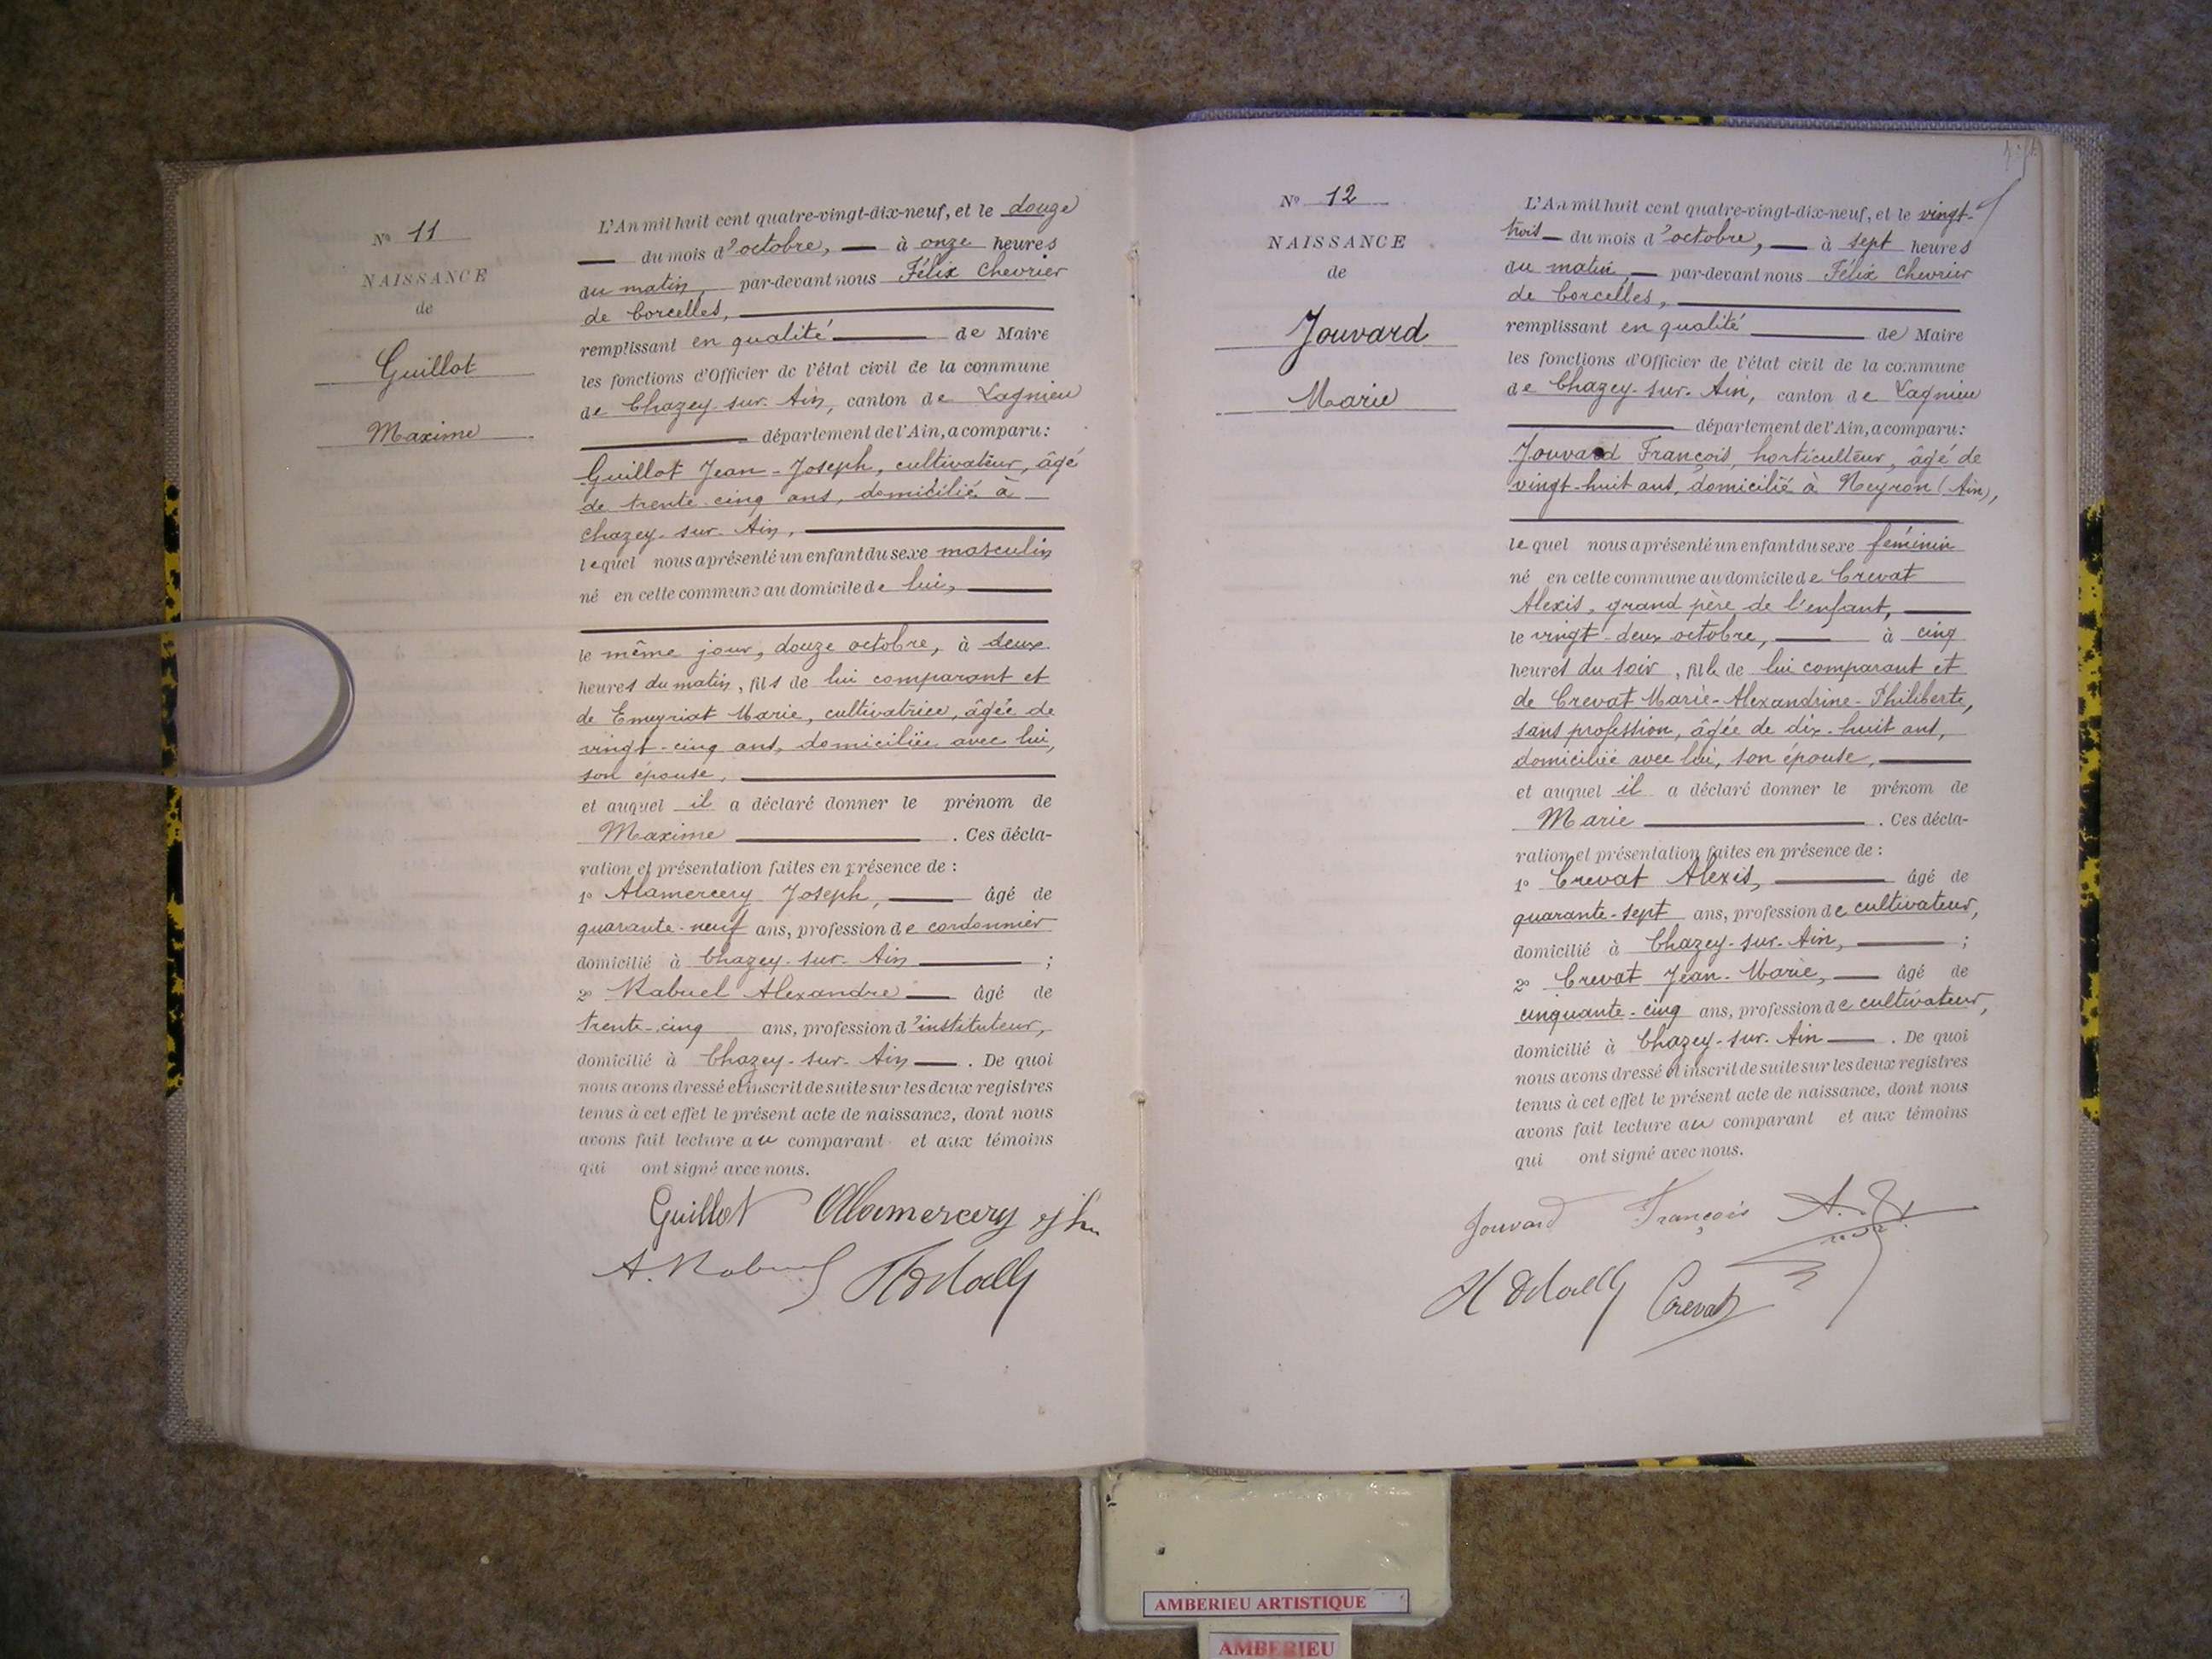 Nº 11
NAISSANCE
de
Guillot
Maxime
L'An mil huit cent quatre-vingt-dix-neuf, et le douze
du mois d'octobre, à onze heures
du matin, par-devant nous Félix Chevrier
de Corcelles,
remplissant en qualité de Maire
les fonctions d'Officier de l'état civil de la commune
de Chazey-sur-Ain, canton de Lagnieu
département de l'Ain, a comparu :
Guillot Jean-Joseph, cultivateur, âgé
de trente-cinq ans, domicilié à
Chazey-sur-Ain,
lequel nous a présenté un enfant du sexe masculin
né en cette commune au domicile de lui,
le même jour, douze octobre, à deux
heures du matin, fils de lui comparant et
de Emeyriat Marie, cultivatrice, âgée de
vingt-cinq ans, domiciliée avec lui,
son épouse,
et auquel il a déclaré donner le prénom de
Maxime . Ces décla-
ration et présentation faites en présence de :
1º Alamercery Joseph, âgé de
quarante-neuf ans, profession de cordonnier
domicilié à Chazey-sur-Ain ;
2º Rabuel Alexandre âgé de
trente-cinq ans, profession d'instituteur,
domicilié à Chazey-sur-Ain . De quoi
nous avons dressé et inscrit de suite sur les deux registres
tenus à cet effet le présent acte de naissance, dont nous
avons fait lecture au comparant et aux témoins
qui ont signé avec nous.
Guillot Alamercery
A. Rabuel
Nº 12
NAISSANCE
de
Jouvard
Marie
L'An mil huit cent quatre-vingt-dix-neuf, et le vingt-
trois du mois d'octobre, à sept heures
du matin par-devant nous Félix Chevrier
de Corcelles,
remplissant en qualité de Maire
les fonctions d'Officier de l'état civil de la commune
de Chazey-sur-Ain, canton de Lagnieu
département de l'Ain, a comparu :
Jouvard François, horticulteur, âgé de
vingt-huit ans, domicilié à Neyron (Ain),
lequel nous a présenté un enfant du sexe féminin
né en cette commune au domicile de Crevat
Alexis, grand père de l'enfant,
le vingt-deux octobre, à cinq
heures du soir, fille de lui comparant et
de Crevat Marie-Alexandrine-Philiberte,
sans profession, âgée de dix-huit ans,
domiciliée avec lui, son épouse,
et auquel il a déclaré donner le prénom de
Marie . Ces décla-
ration et présentation faites en présence de :
1º Crevat Alexis, âgé de
quarante-sept ans, profession de cultivateur,
domicilié à Chazey-sur-Ain, ;
2º Crevat Jean-Marie, âgé de
cinquante-cinq ans, profession de cultivateur,
domicilié à Chazey-sur-Ain . De quoi
nous avons dressé et inscrit de suite sur les deux registres
tenus à cet effet le présent acte de naissance, dont nous
avons fait lecture au comparant et aux témoins
qui ont signé avec nous.
Jouvard François
Crevat
AMBERIEU ARTISTIQUE
AMBERIEU